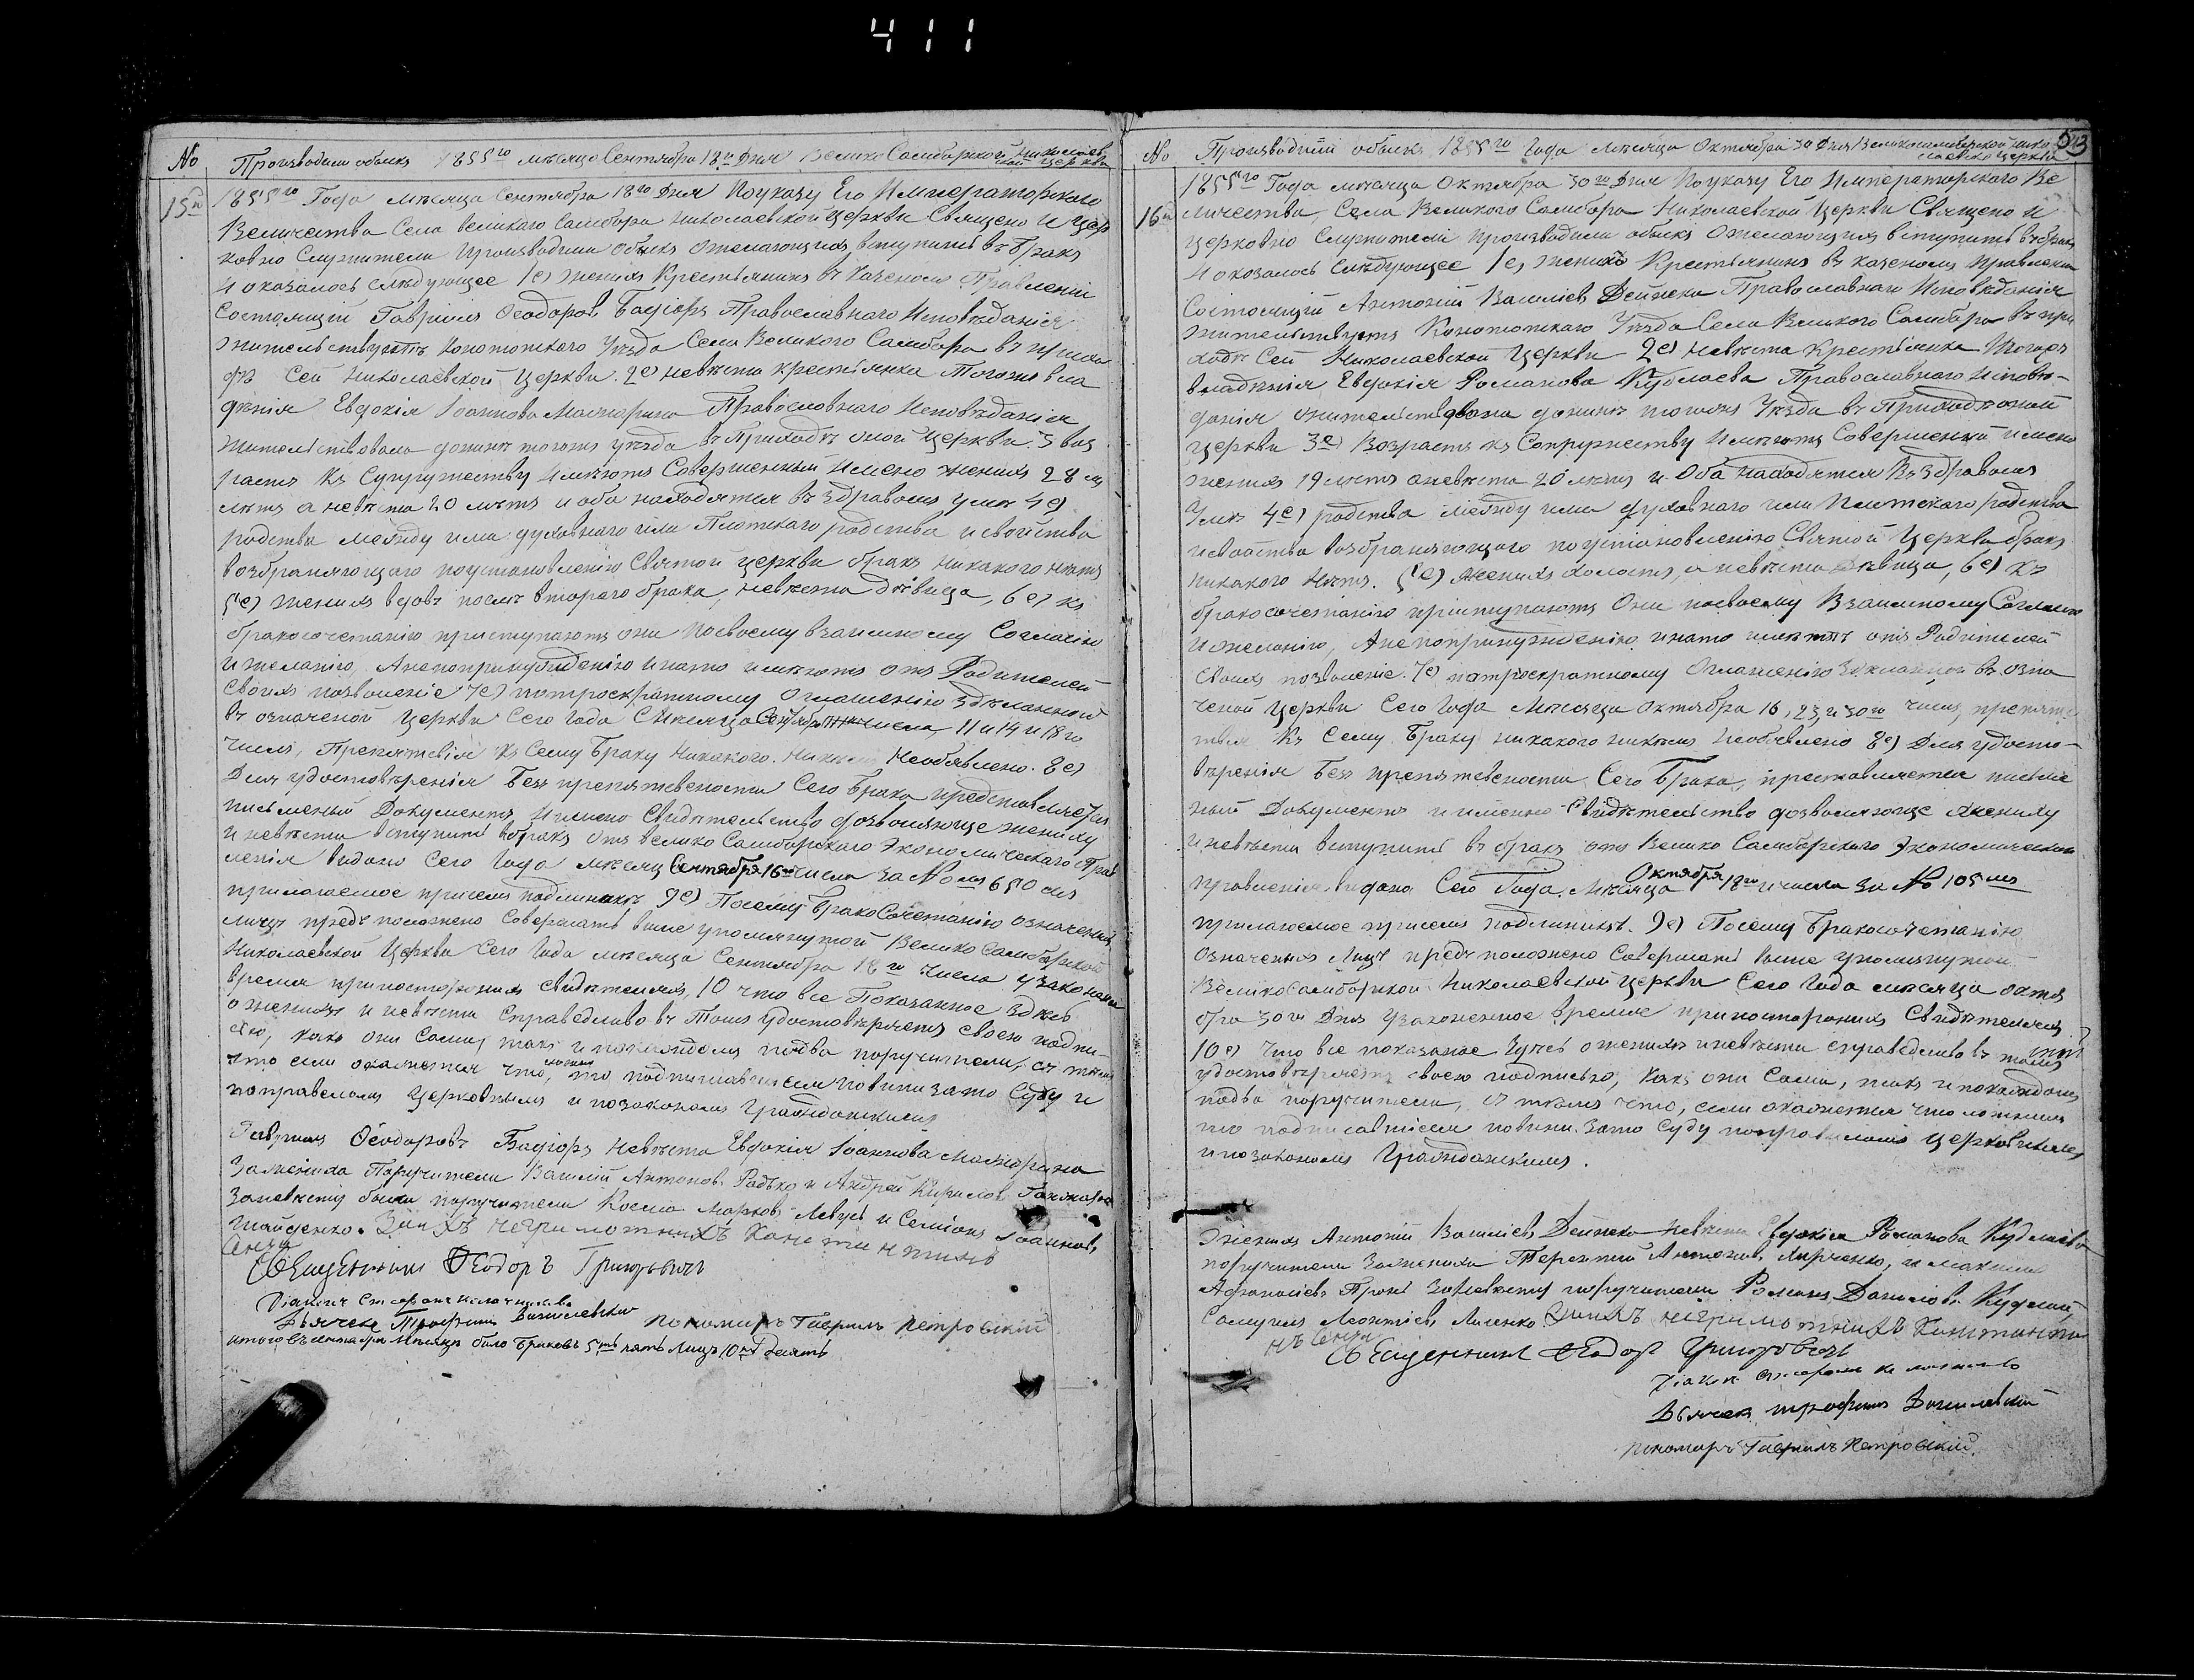 411
No Производили обыскъ 1855го мѣсяца Сентября 18го Дня Велико Самборской Николаев
ской Церкви
15й 1855го Года мѣсяца Сентября 18го Дня Поуказу Его Императорского
Величества Села великаго Самбора Николаевской Церкви Священо и Цер
ковно Служители производили обыскъ ожелающихъ вступить въ бракъ
и оказалось слѣдующее 1е) женихъ Крестьянинъ въ Казеномъ Правленіи
Состоящій Гавріилъ Ѳеодоровъ Багіоръ Православнаго Исповѣданія
жительствуетъ Конотопского Уѣзда Села Великого Самбора въ прихо
дѣ Сей Николаевской Церкви. 2е) невѣста крестьянка Тогожъ вла
дѣнія Евдокія Іоаннова Православного Исповѣданія
жительствовала донинѣ тогожъ уѣзда въ Приходѣ оной Церкви. 3 воз
растъ Къ Супружеству Имѣютъ Совершенный Имено женихъ 28 мь
лѣтъ а невѣста 20 лѣтъ и оба находятся въ здравомъ умѣ 4е)
родства между ими духовнаго или Плотскаго родства и свойства
возбраняющаго поустановленію Святой церкви бракъ никакого нѣтъ
5е) женихъ вдовъ послѣ втораго брака, невѣста дѣвица, 6е) къ
бракосочетанію приступаютъ они посвоему взаимному Согласію
и желанію, Анепопринужденію инато имѣютъ отъ Родителей
своихъ позволеніе 7е) потроекратному Оглашенію Здѣланной
въ означеной Церкви Сего Года Мѣсяца Сентября числа 11 и 14 и 18го
числъ, Препятствія къ Сему Браку Никакого Никѣмъ Необявлено. 8е)
Для удостовѣренія Безъ препятствености Сего Брака представляется
письменый Документъ Имено Свидѣтельство дозволяюще жениху
и невѣсти вступить вбракъ отъ велико Самборского Экономическаго Прав
ленія видано Сего Года мѣсяц Сентября 16го числа за No мъ 650 мъ
прилагаемое присемъ подлиникъ 9е) Посему Бракосочетанію означеныхъ
лицъ предположено Совершать више упомянутой Велико Самборской
Николаевской Церкви Сего Года мѣсяца Сентября 18го числа узаконеное
время припосторонихъ свидѣтеляхъ, 10 что все Показанное Здѣсь
о женихѣ и невѣсти Справедливо въ Томъ удостовѣряютъ своею подпи-
сью, какъ они Сами, такъ ипокаждомъ подва поручители, съ тѣмъ
что если окажется что, ложно то подписавшіеся повини зато Суду и
поправиламъ Церковнымъ и позаконамъ Гражданскимъ
Гавріилъ Ѳеодоровъ Багіоръ Невѣста Евдокія Іоаннова
Зажениха Поручители Василій Антоновъ Радько и Андрей Кириловъ
Заневѣсту были поручители Косма Марковъ Левусъ и Семіонъ Іоанновъ
Шайденко. Заихъ неграмотныхъ Константинъ
Сенча
Священникъ Ѳеодоръ Григоровичъ
Діаконъ Стефанъ
Дьячекъ Трофимъ Василевскій пономаръ Гавріилъ Петровскій
итого въ сентября мѣсяцѣ было Браковъ 5ть пять Лицъ 10ть Десять
No Производили обыскъ 1855го Года мѣсяца Октября 30 Дня Великосамборской Нико
лаевской Церкви
53
16й 1855го Года мѣсяца Октября 30го Дня Поуказу Его Императорского Ве
личества, Села Великого Самбора Николаевской Церкви Священо и
церковно Служители производили обыскъ Ожелающихъ вступить въ бракъ
и оказалось Слѣдующее 1е) женихъ Крестьянинъ въ казеномъ Правленіи
Состоящій Антоній Василіевъ Дейнека Православнаго Исповѣданія
жительствуетъ Конотопскаго Уѣзда Села Великого Самбора въ при
ходѣ Сей Николаевской Церкви 2е) невѣста Крестьянка Тогожъ
владѣнія Евдокія Романова Кудлаева Православнаго Исповѣ-
данія жительствовала донинѣ тогожъ Уѣзда въ Приходѣ оной
Церкви 3е) Возрастъ къ Сопружеству Имѣютъ Совершенный имено
женихъ 19 лѣтъ аневѣста 20 лѣтъ и Оба находятся Въ здравомъ
Умѣ 4е) родства между ими духовнаго или Плотского родства
исвойства возбраняющаго поустановленію Святой Церкви бракъ
никакого Нѣтъ. 5е) Женихъ холостъ, а невѣста дѣвица, 6е) къ
бракосочетанію приступаютъ Они посвоему Взаимному Согласию
и желанію, Анепопринужденію инато имѣютъ отъ Родителей
своихъ позволеніе. 7е) потроекратному Оглашенію Здѣланной въ озна
ченой Церкви Сего Года Мѣсяца Октября 16, 23, и 30го числъ, препятс
твія Къ Сему Браку никакого никѣмъ необявлено 8е) Для удосто-
вѣренія Безъ препятствености Сего Брака, преставляется письме
ный Документъ и именно Свидѣтельство дозволяюще жениху
и невѣсти вступить въ бракъ отъ Велико Самборского Экономическаго
правленія видана Сего Года. Мѣсяца Октября 18го числа За No 105 мъ
прилагаемое присемъ подлиникъ. 9е) Посему Бракосочетанію
Означеныхъ Лицъ предположено Совершать выше упомянутой
Великосамборской Николаевской церкви Сего Года мѣсяца октя
бра 30го Дня узаконенное время припосторонихъ Свидѣтеляхъ
10е) Что все показаное Здѣсь о женихѣ иневѣсти справедливо въ томъ
удостовѣряютъ своею подписью, какъ они Сами, такъ ипокаждомъ
подва поручители, съ тѣмъ что, если окажется что ложнымъ
то подписавшіеся повини. зато Суду поправиламъ Церковнымъ
и позаконамъ Гражданскимъ.
Женихъ Антоній Василіевъ Дейнека Невѣста Евдокіа Романова Кудлаева
поручители зажениха Терентій Антоновъ Лирченко, и Максимъ
Афанасіевъ Заневѣсту поручители Романъ Даниловъ Кудлай,
Самуилъ Леонтіевъ Лисенко. Заихъ неграмотныхъ Константи
нъ Сенча
Священникъ Ѳеодоръ Григоровичъ
Діаконъ Стефанъ
Дьячекъ Трофимъ Василевскій
пономарь Гавріилъ Петровскій.